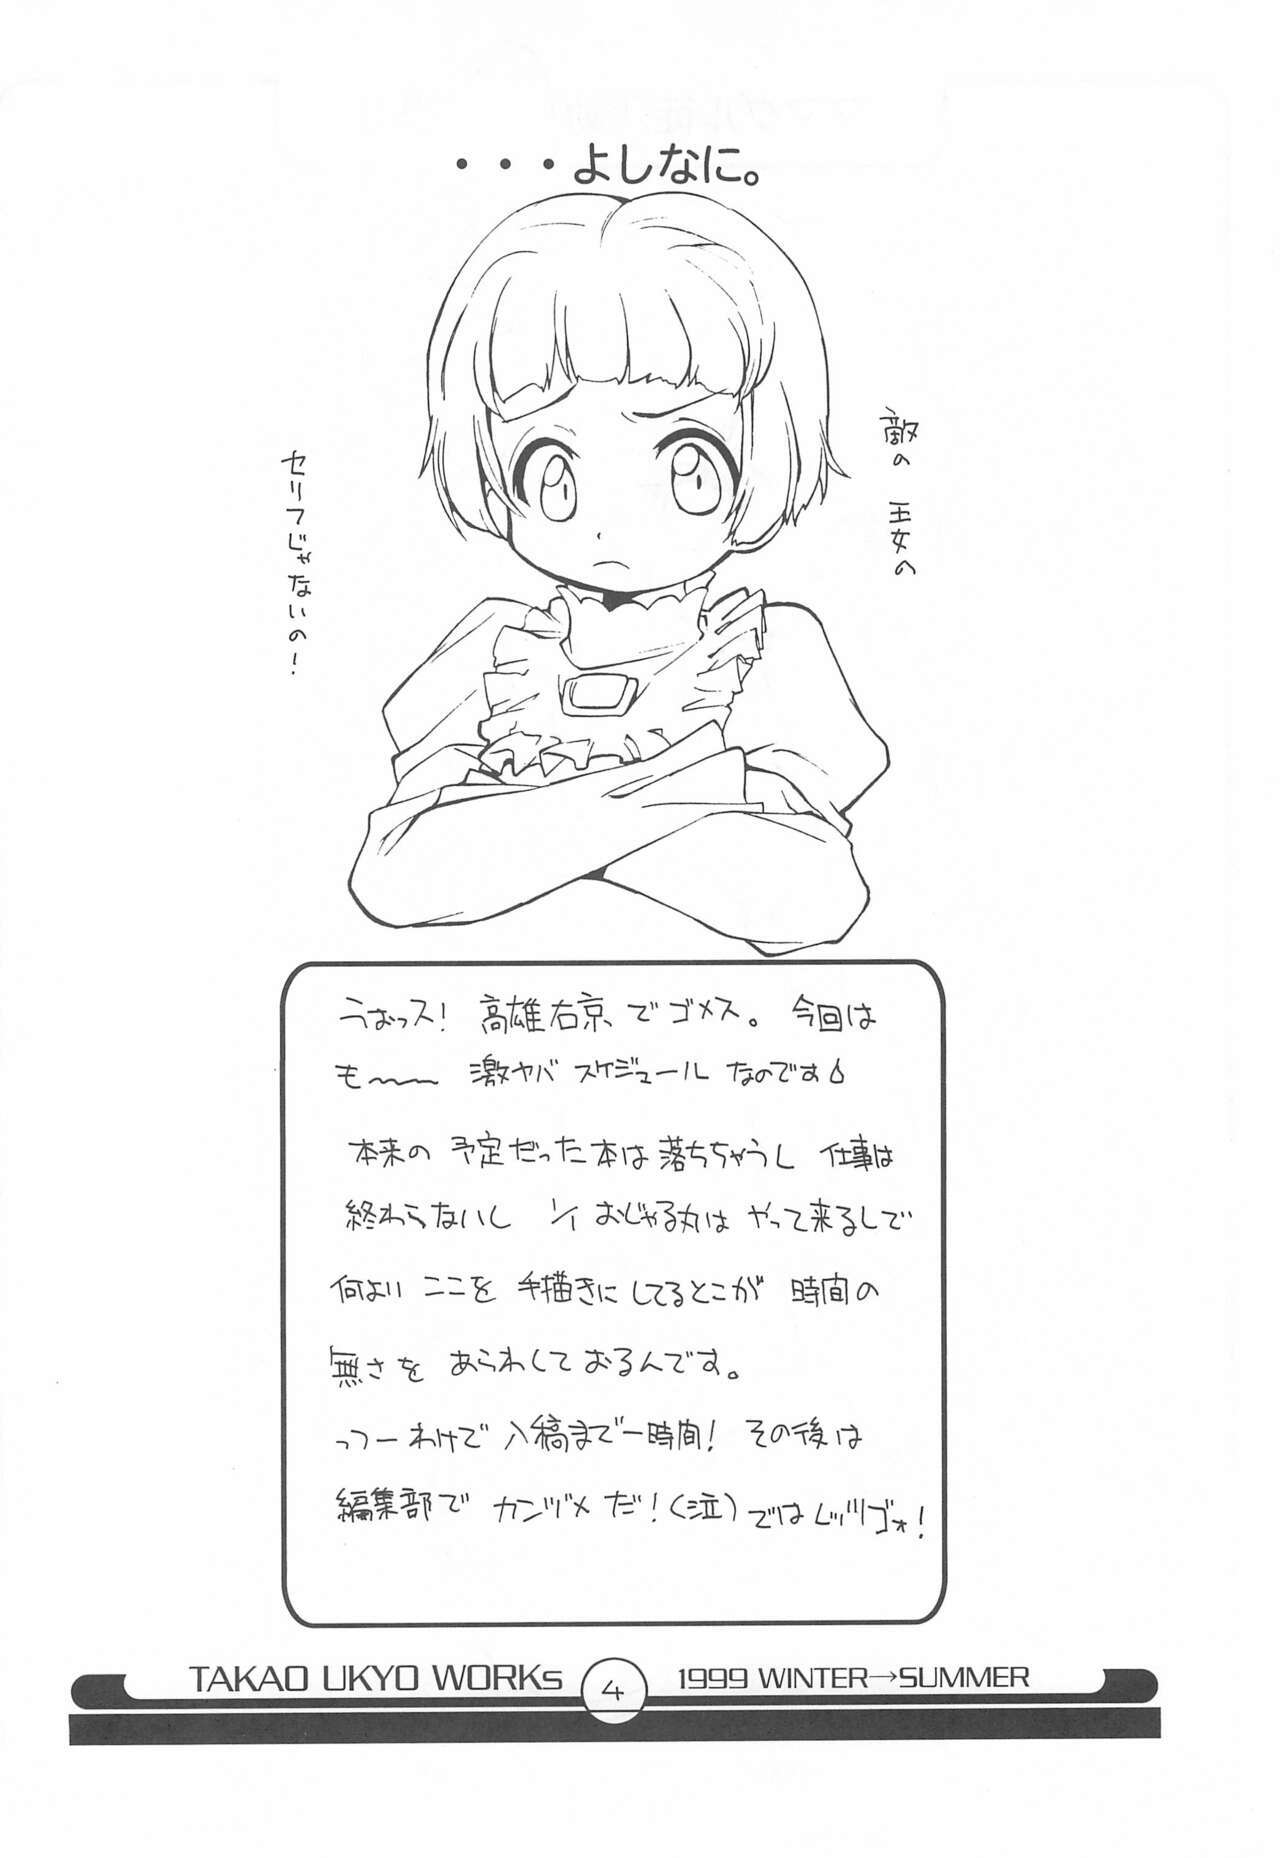 ・・・よしなに。
敵の 王女の
セリフじゃないの！
うおっス！ 高雄右京、でゴメス。 今回は
も〜〜 激ヤバ スケジュール なのです
本来の 予定だった本は落ちちゃうし 仕事は
終わらないし おじゃる丸は やって来るしで
何よい ここを 手描きにしてるとこが 時間の
無さを あらわしておるんです。
っつーわけで 入稿まで一時間！ その後は
編集部で カンヅメ だ！（泣）では レッツゴォ！
TAKAO UKYO WORKs 4 1999 WINTER→SUMMER